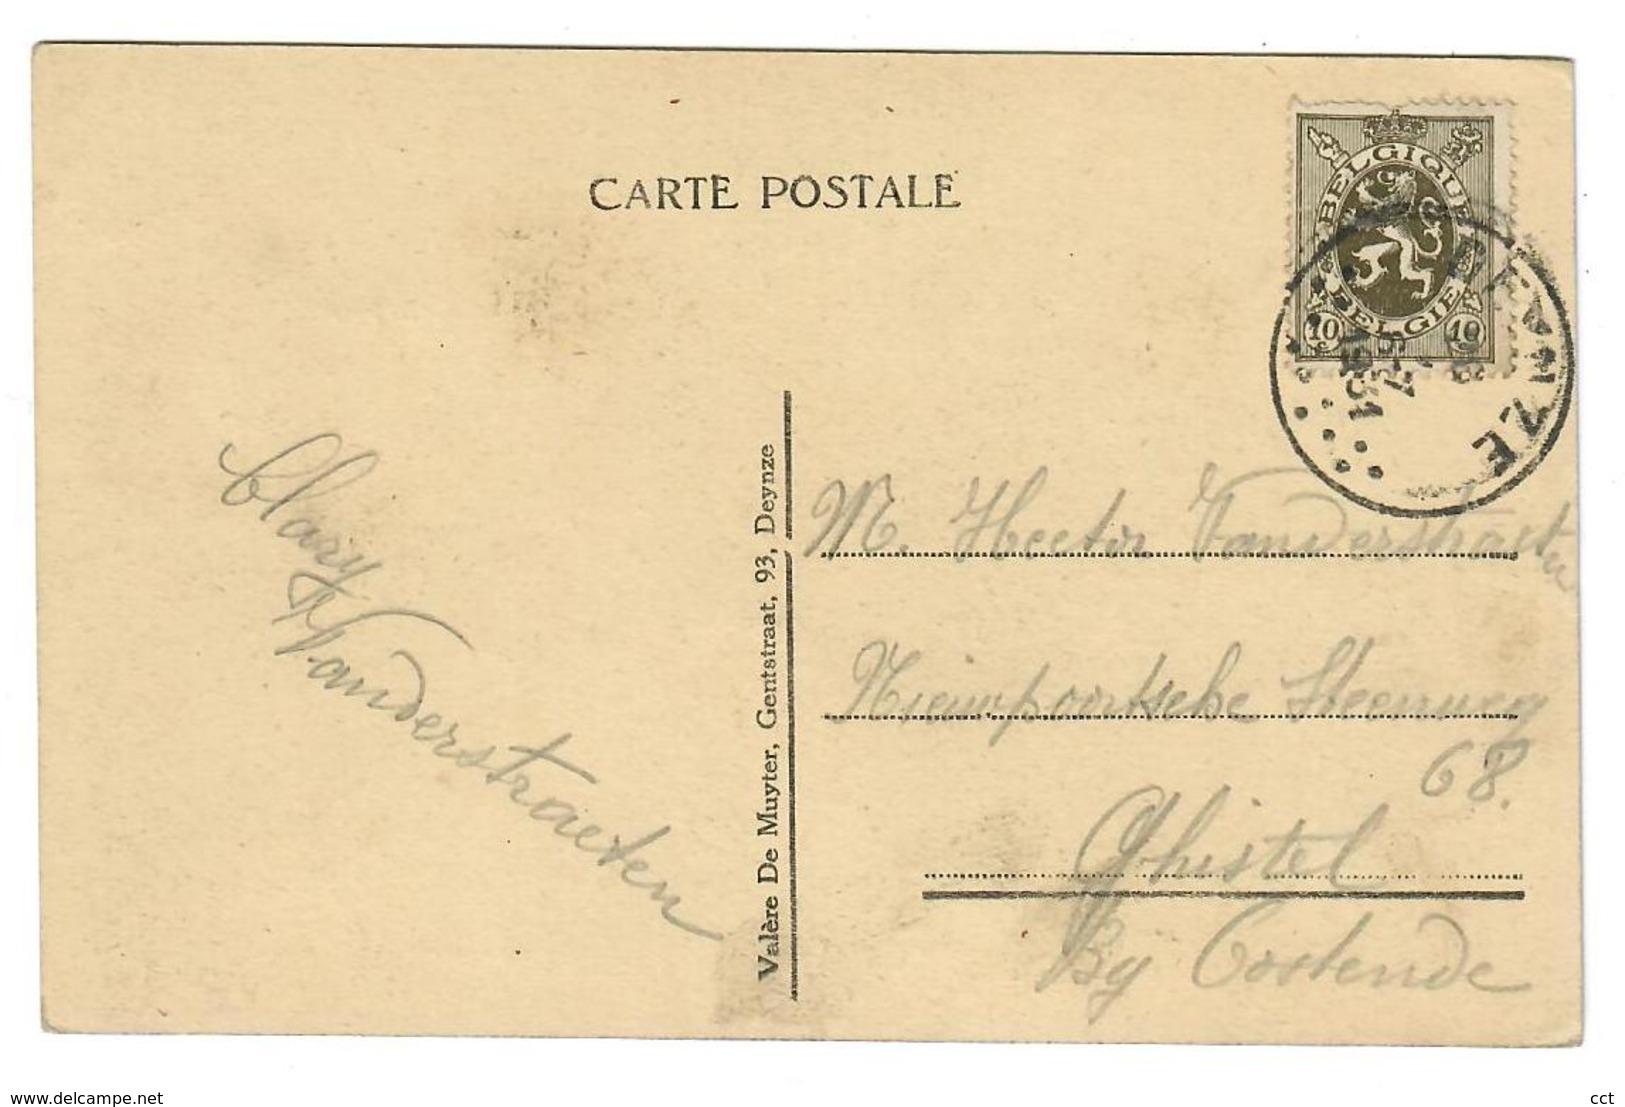 CARTE POSTALE
BELGIQUE
BELGIË
10 10
DEYNZE
5-7
1931
Clary
Vanderstraeten
Valère De Muyter, Gentstraat, 93, Deynze
M. Hector Vanderstraeten
Nieuwpoortsche Steenweg
68.
Ghistel
By Oostende
www.delcampe.net
cct